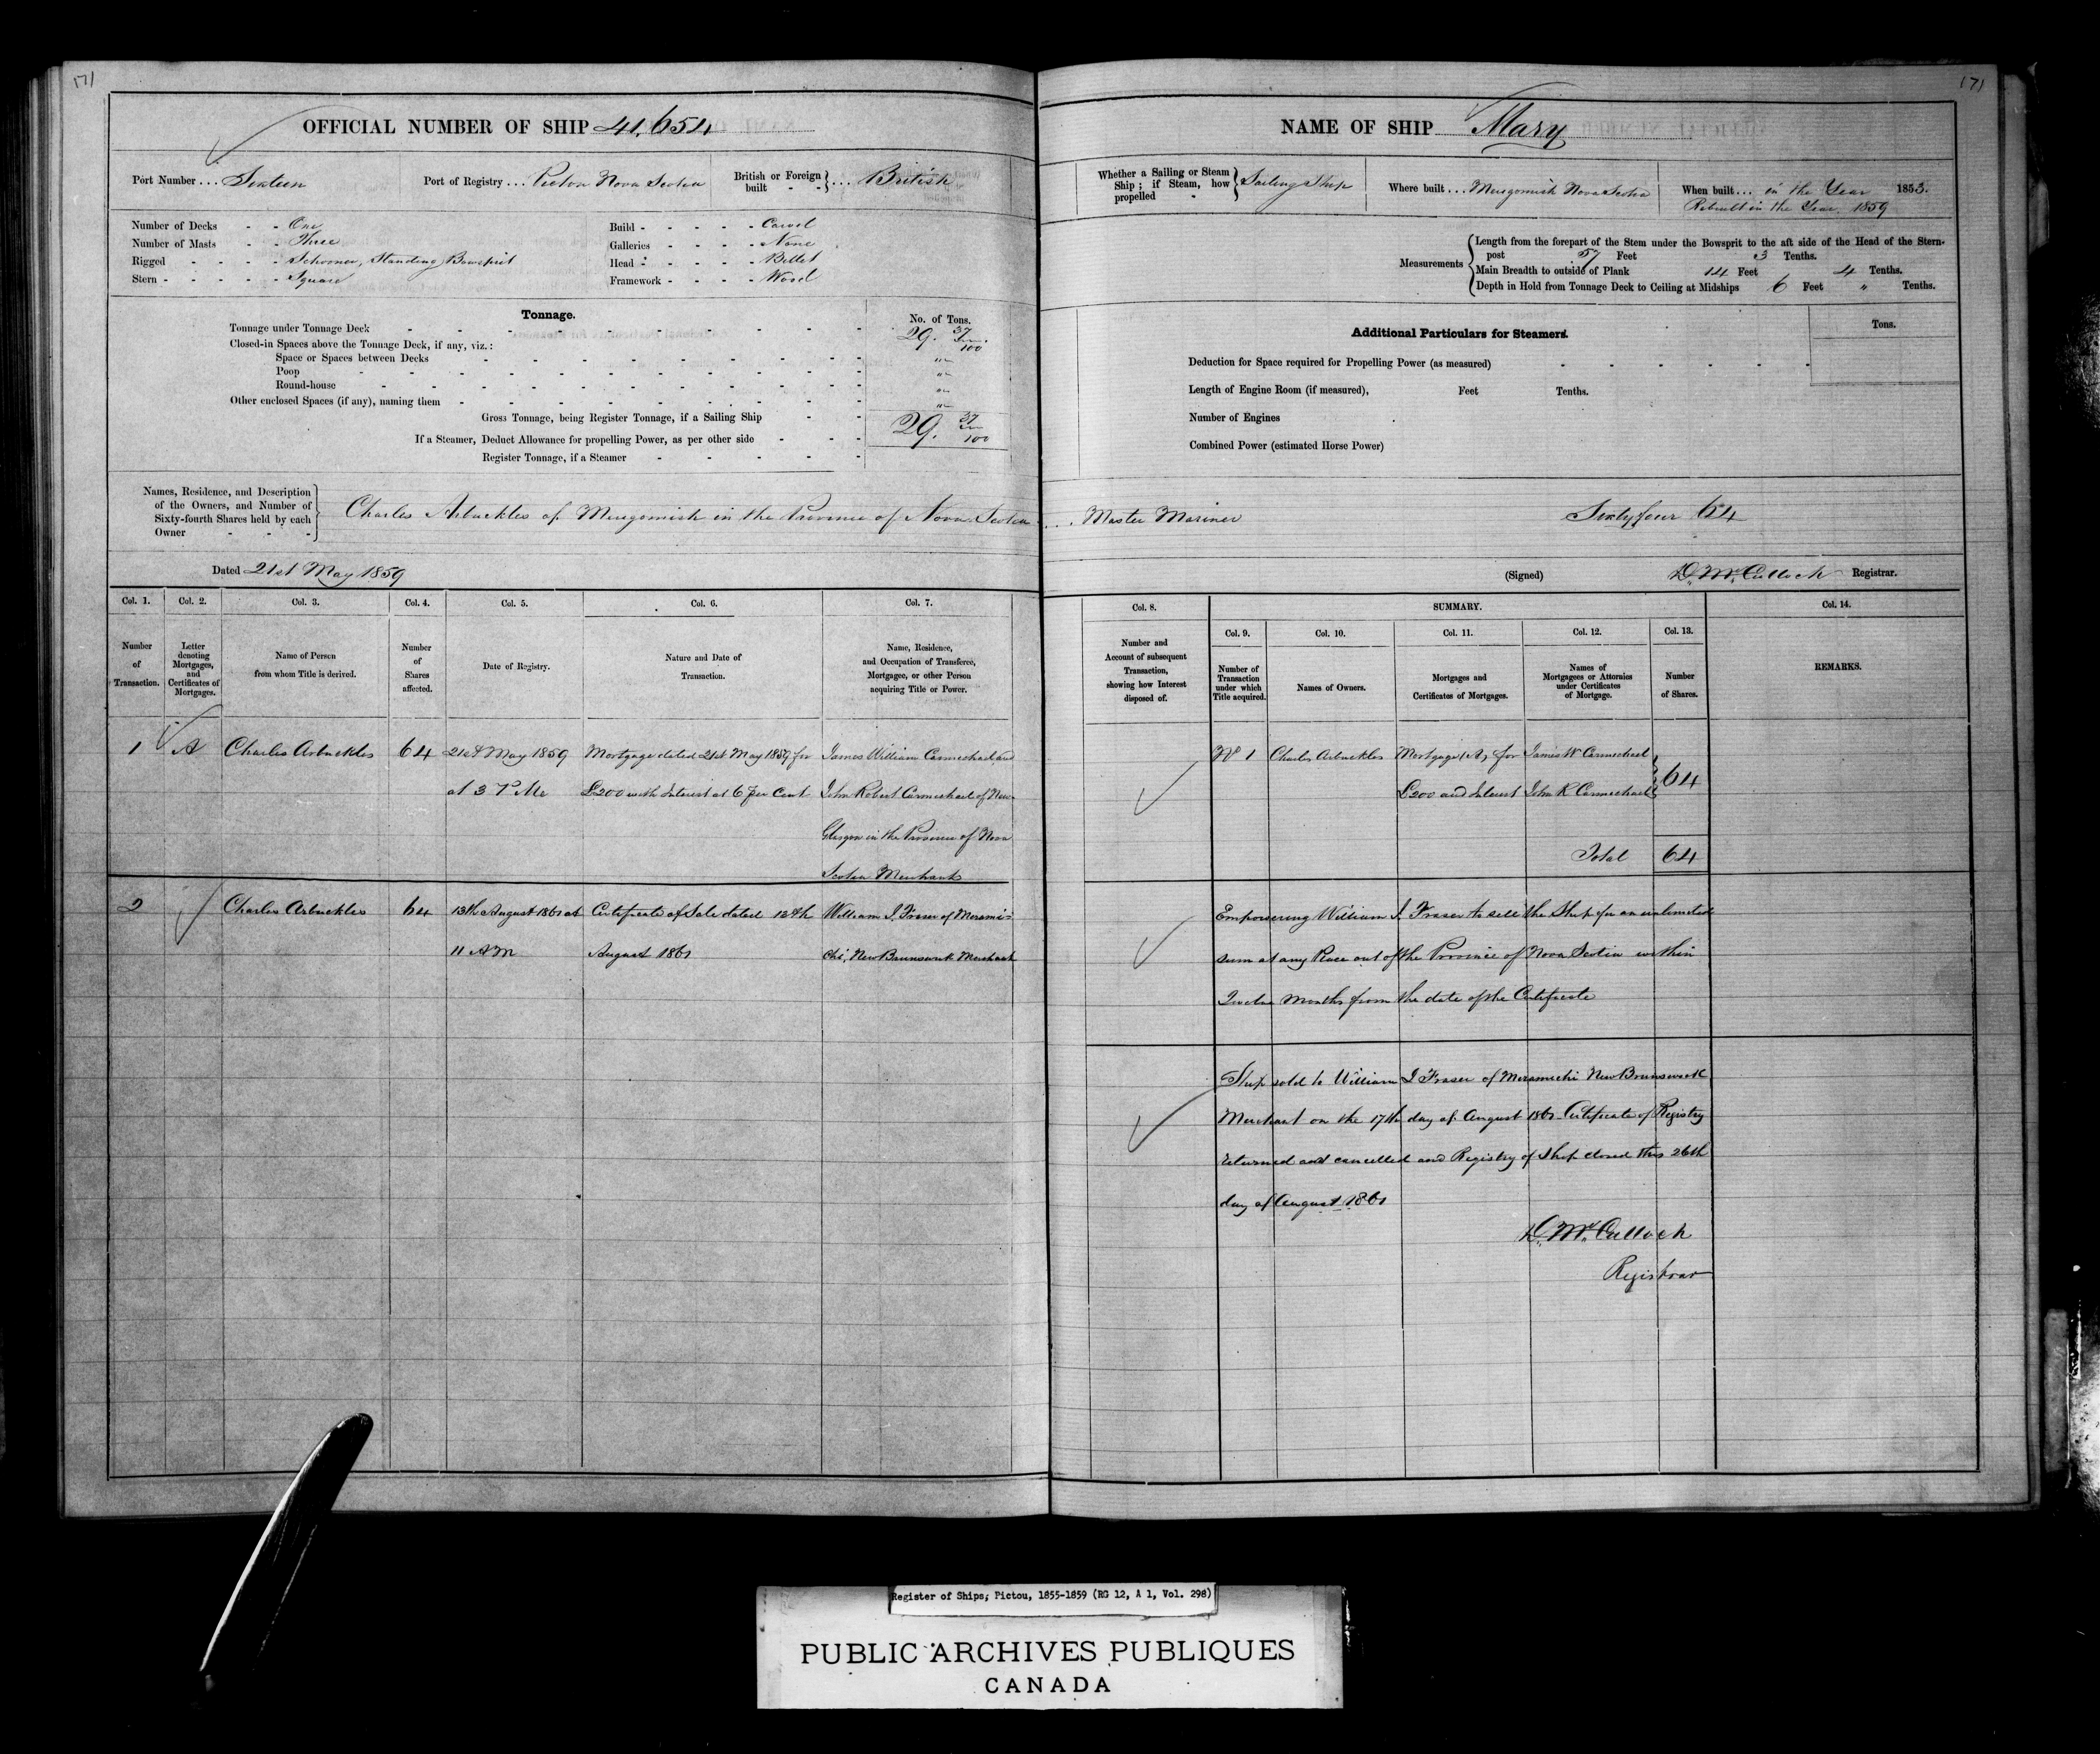 171
OFFICIAL NUMBER OF SHIP 41,654
Port Number ... Sixteen
Port of Registry ... Pictou Nova Scotia
British or Foreign built - - } ... British
Number of Decks - - One
Number of Masts - - Three
Rigged - - - - Schooner, Standing Bowsprit
Stern - - - - - Square
Build - - - - - Carvel
Galleries - - - - None
Head - - - - - Billet
Framework - - - - Wood
Tonnage.
No. of Tons.
Tonnage under Tonnage Deck 29. 37/100
Closed-in Spaces above the Tonnage Deck, if any, viz.:
Space or Spaces between Decks "
Poop "
Round-house "
Other enclosed Spaces (if any), naming them "
Gross Tonnage, being Register Tonnage, if a Sailing Ship 29. 37/100
If a Steamer, Deduct Allowance for propelling Power, as per other side
Register Tonnage, if a Steamer
Names, Residence, and Description
of the Owners, and Number of
Sixty-fourth Shares held by each
Owner
Charles Arbuckles of Merigomish in the Province of Nova Scotia
Dated 21st May 1859
Col. 1. Col. 2. Col. 3. Col. 4. Col. 5. Col. 6. Col. 7.
Number of Transaction.
Letter denoting Mortgages, and Certificates of Mortgages.
Name of Person from whom Title is derived.
Number of Shares affected.
Date of Registry.
Nature and Date of Transaction.
Name, Residence, and Occupation of Transferee, Mortgagee, or other Person acquiring Title or Power.
1 A Charles Arbuckles 64 21st May 1859 Mortgage dated 21st May 1859 for James William Carmichael and
at 3 P Mc £200 with Interest at 6 per Cent John Robert Carmichael of New
Glasgow in the Province of Nova
Scotia Merchants
2 Charles Arbuckles 64 13th August 1861 at Certificate of Sale dated 12th William J. Fraser of Merami-
11 AM August 1861 chi, New Brunswick Merchant
171
NAME OF SHIP Mary
Whether a Sailing or Steam Ship; if Steam, how propelled } Sailing Ship
Where built ... Merigomish Nova Scotia
When built ... in the Year 1853.
Rebuilt in the Year 1859
Measurements
Length from the forepart of the Stem under the Bowsprit to the aft side of the Head of the Stern-
post 57 Feet 3 Tenths.
Main Breadth to outside of Plank 14 Feet 4 Tenths.
Depth in Hold from Tonnage Deck to Ceiling at Midships 6 Feet " Tenths.
Additional Particulars for Steamers.
Tons.
Deduction for Space required for Propelling Power (as measured)
Length of Engine Room (if measured), Feet Tenths.
Number of Engines
Combined Power (estimated Horse Power)
Master Mariner Sixty four 64
(Signed) D. McCulloch Registrar.
Col. 8. SUMMARY. Col. 14.
Col. 9. Col. 10. Col. 11. Col. 12. Col. 13.
Number and Account of subsequent Transaction, showing how Interest disposed of.
Number of Transaction under which Title acquired.
Names of Owners.
Mortgages and Certificates of Mortgages.
Names of Mortgagees or Attornies under Certificates of Mortgage.
Number of Shares.
REMARKS.
No 1 Charles Arbuckles Mortgage (A) for James W Carmichael
£200 and Interest John R Carmichael 64
Total 64
Empowering William J. Fraser to sell the Ship for an unlimited
sum at any Place out of the Province of Nova Scotia within
Twelve Months from the date of the Certificate
Ship sold to William J Fraser of Meramichi New Brunswick
Merchant on the 17th day of August 1861 Certificate of Registry
returned and cancelled and Registry of Ship closed this 26th
day of August 1861
D. McCulloch
Registrar
Register of Ships; Pictou, 1855-1859 (RG 12, A 1, Vol. 298)
PUBLIC ARCHIVES PUBLIQUES
CANADA